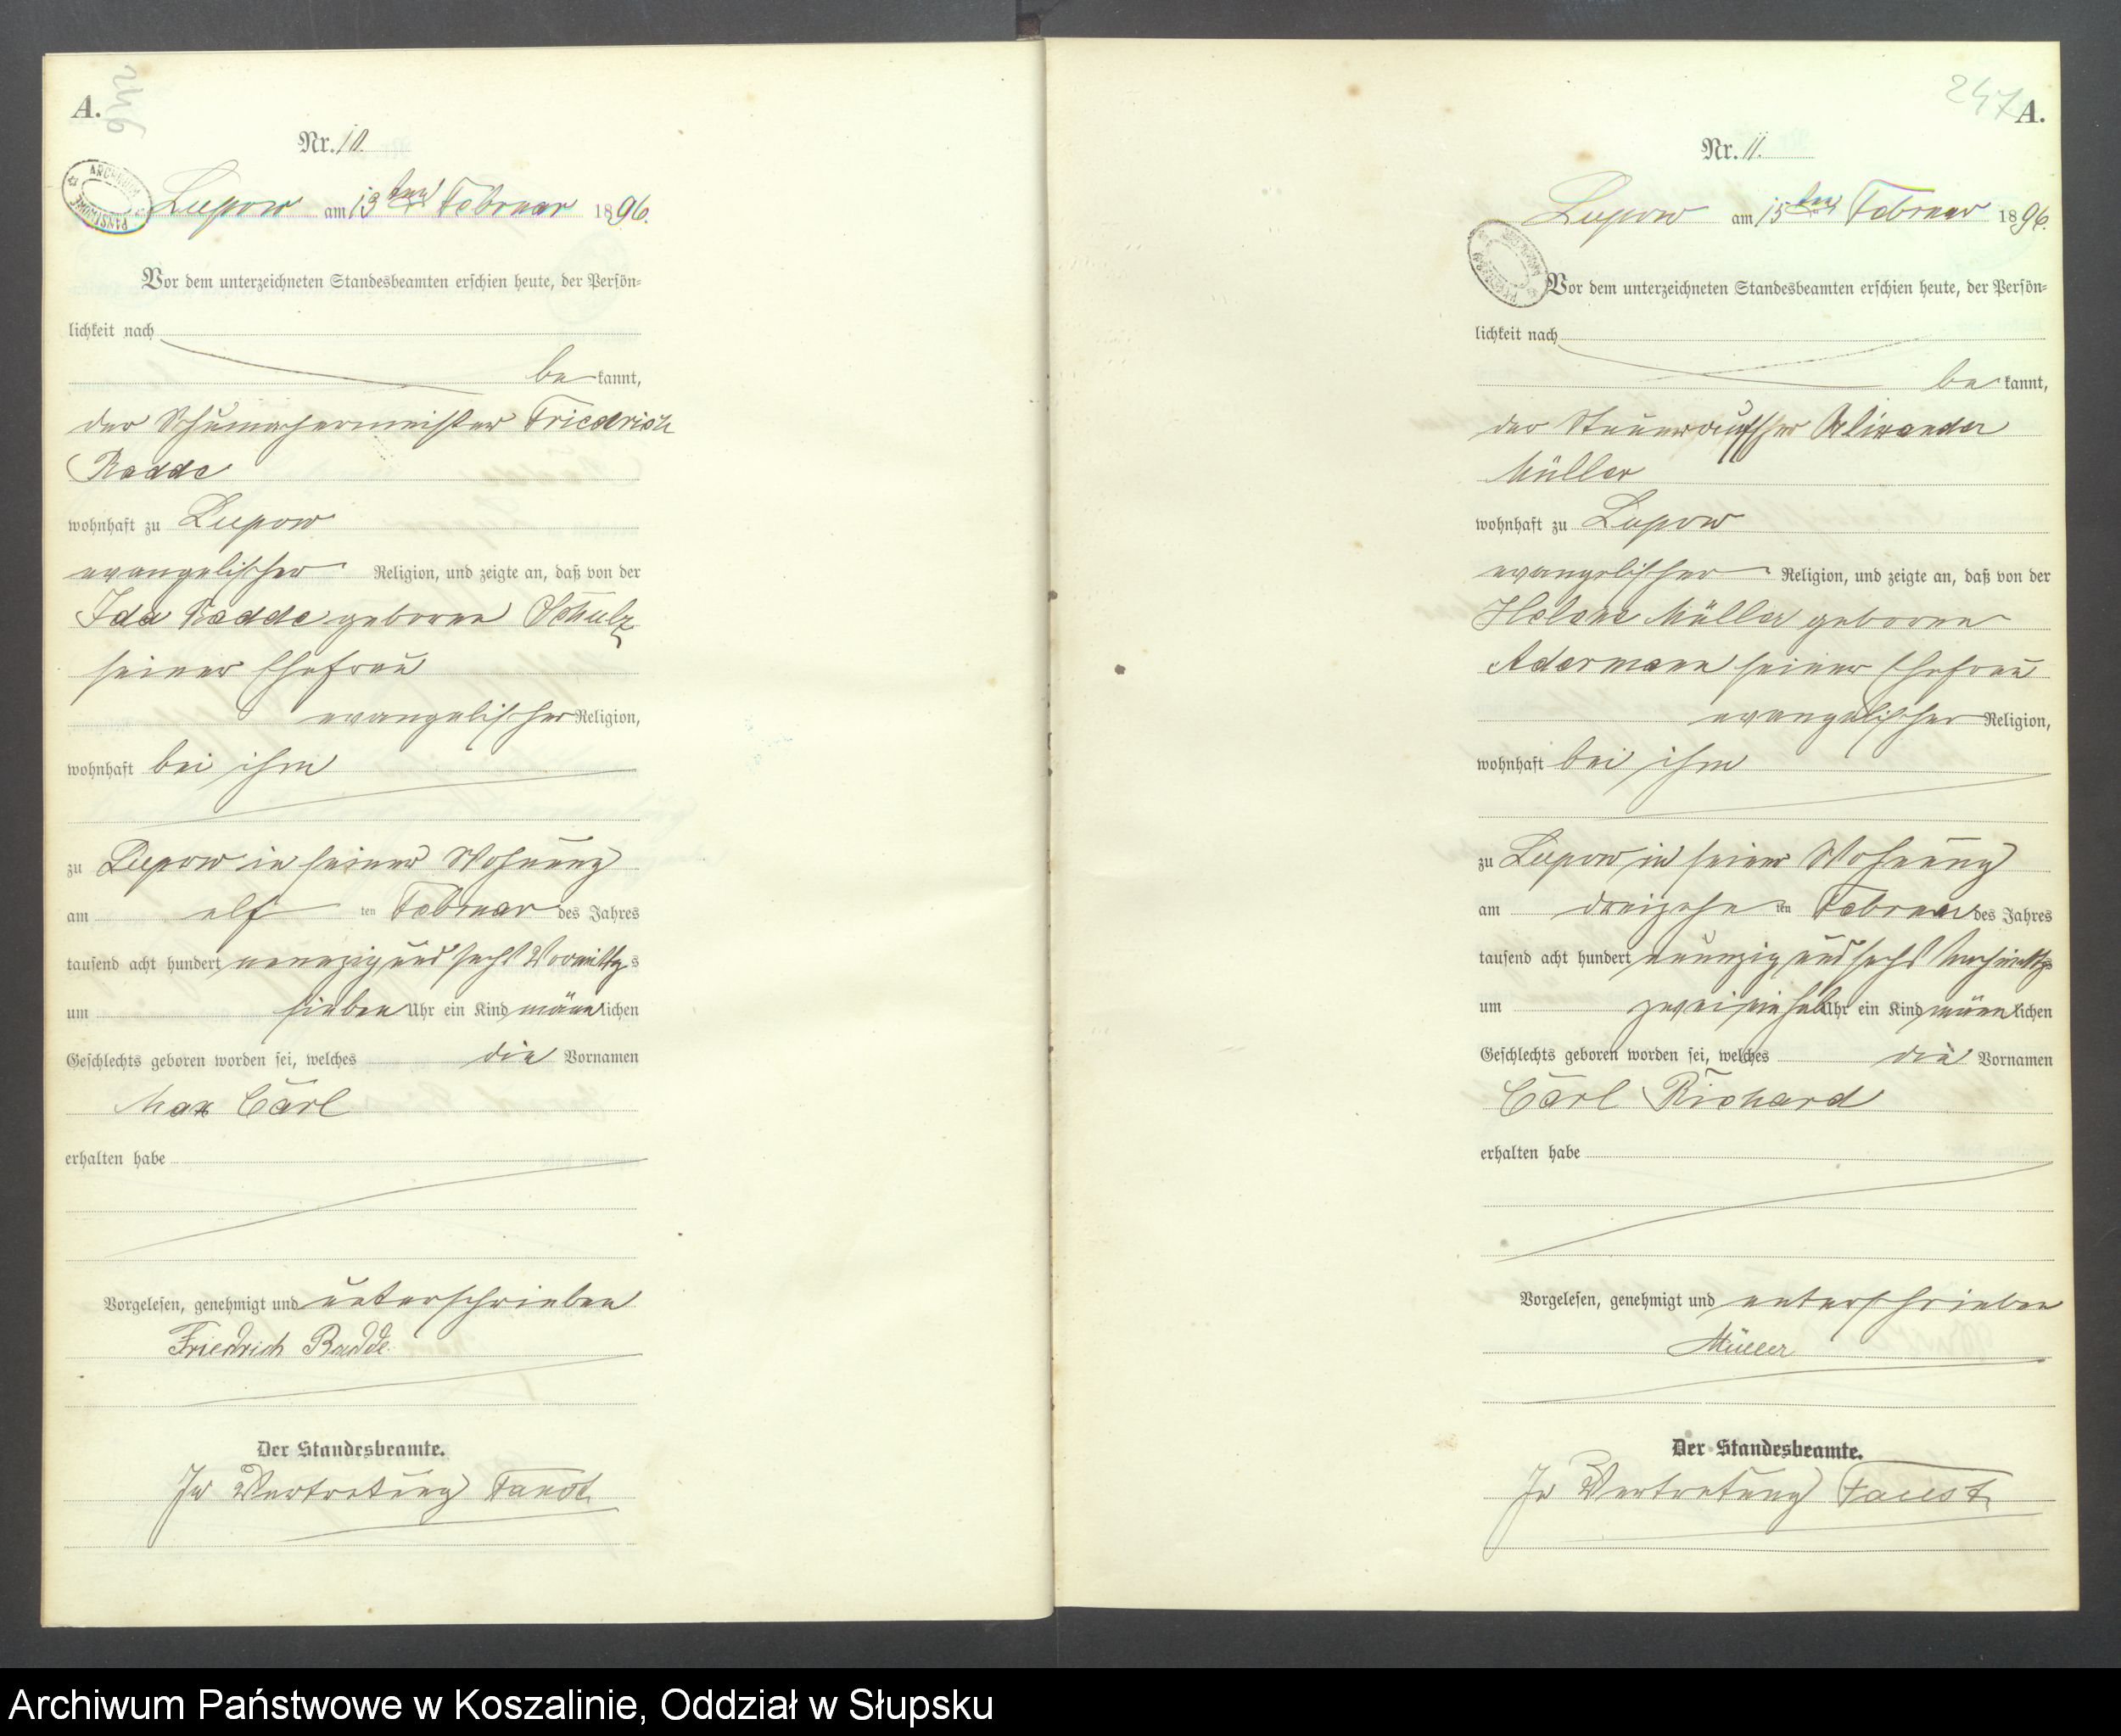 A.
246
Nr. 10.
ARCHIWUM PAŃSTWOWE
Lupow am 13ten Februar 1896.
Vor dem unterzeichneten Standesbeamten erschien heute, der Persön-
lichkeit nach
be kannt,
der Schumachermeister Friedrich
Radde
wohnhaft zu Lupow
evangelischer Religion, und zeigte an, daß von der
Ida Radde geborne Schulz
seiner Ehefrau
evangelischer Religion,
wohnhaft bei ihm
zu Lupow in seiner Wohnung
am elf ten Februar des Jahres
tausend acht hundert neunzig und sechs Vormittags
um sieben Uhr ein Kind männlichen
Geschlechts geboren worden sei, welches die Vornamen
Max Carl
erhalten habe
Vorgelesen, genehmigt und unterschrieben
Friedrich Radde
Der Standesbeamte.
In Vertretung Faust
247 A.
Nr. 11.
Lupow am 15ten Februar 1896.
Vor dem unterzeichneten Standesbeamten erschien heute, der Persön-
lichkeit nach
be kannt,
der Steueraufseher Alexander
Müller
wohnhaft zu Lupow
evangelischer Religion, und zeigte an, daß von der
Helene Müller geborne
Adermann seiner Ehefrau
evangelischer Religion,
wohnhaft bei ihm
zu Lupow in seiner Wohnung
am dreizehn ten Februar des Jahres
tausend acht hundert neunzig und sechs Nachmittags
um zweieinhalb Uhr ein Kind männlichen
Geschlechts geboren worden sei, welches die Vornamen
Carl Richard
erhalten habe
Vorgelesen, genehmigt und unterschrieben
Müller
Der Standesbeamte.
In Vertretung Faust
Archiwum Państwowe w Koszalinie, Oddział w Słupsku